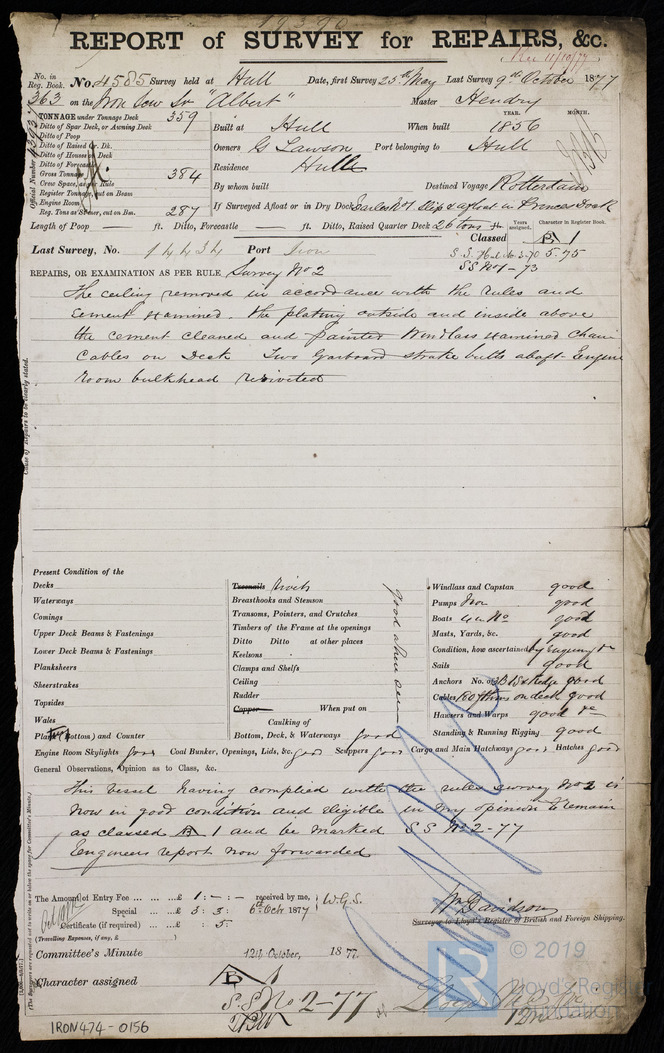 19390
REPORT of SURVEY for REPAIRS, &c.
Rec 11/10/77
No. in Reg. Book. No. 4585 Survey held at Hull Date, first Survey 25th May Last Survey 9th October 1877
363 on the Iron Scw Sr "Albert" Master Hendry
TONNAGE under Tonnage Deck 359
YEAR. MONTH.
Ditto of Spar Deck, or Awning Deck
Built at Hull When built 1856
Ditto of Poop
Ditto of Raised Qr. Dk.
Owners G Lawson Port belonging to Hull
Ditto of Houses on Deck
Ditto of Forecastle
Residence Hull
Gross Tonnage 384
Crew Space, as per Rule
By whom built Destined Voyage Rotterdam
Register Tonnage, cut on Beam
Engine Room
If Surveyed Afloat or in Dry Dock Earles No 7 Slip & afloat in Princes Dock
Reg. Tons as Steamer, cut on Bm. 287
Official Number
Length of Poop — ft. Ditto, Forecastle — ft. Ditto, Raised Quarter Deck 26 tons ft.
Years assigned. Character in Register Book.
Classed A 1
Last Survey, No. 14434 Port Iron
S.S. Hul No 3-70 5.75
SS No 1-73
REPAIRS, OR EXAMINATION AS PER RULE, Survey No 2
The ceiling removed in accordance with the rules and
cement examined. The plating outside and inside above
the cement cleaned and painted Windlass examined Chain
Cables on Deck Two Garboard strake butts abaft Engine
room bulkhead rivited
Cause of Repairs to be clearly stated.
Present Condition of the
Decks
Waterways
Comings
Upper Deck Beams & Fastenings
Lower Deck Beams & Fastenings
Planksheers
Sheerstrakes
Topsides
Wales
Plank (Bottom) and Counter
Treenails Rivits
Breasthooks and Stemson
Transoms, Pointers, and Crutches
Timbers of the Frame at the openings
Ditto Ditto at other places
Keelsons
Clamps and Shelfs
Ceiling
Rudder
Copper When put on
Caulking of
Bottom, Deck, & Waterways good
good when seen
Windlass and Capstan good
Pumps Iron good
Boats good
Masts, Yards, &c. good
Condition, how ascertained by Enquiry &c
Sails good
Anchors No. of good
Cables on deck good
Hawsers and Warps good
Standing & Running Rigging good
Engine Room Skylights good Coal Bunker, Openings, Lids, &c. good Scuppers good Cargo and Main Hatchways good Hatches good
General Observations, Opinion as to Class, &c.
This vessel having complied with the rules survey No 2 is
now in good condition and eligible in my opinion to remain
as classed A 1 and be marked S S No 2-77
Engineers report now forwarded
The Amount of Entry Fee ... ... £ 1 : - : - received by me,
W.G.S.
Special ... £ 3 : 3 : 6th Octr 1877
Certificate (if required) ... £ : 5 :
(Travelling Expenses, if any, £ )
Wm Davidson
Surveyor to Lloyd's Register of British and Foreign Shipping.
Committee's Minute 12th October, 1877.
Character assigned A 1
S.S No 2-77
© 2019
LR
Lloyd's Register
Foundation
IRON474-0156